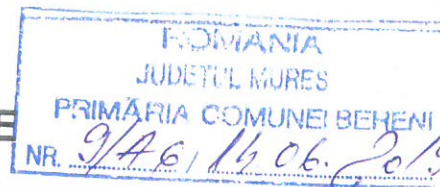 ROMANIA
JUDEȚUL MUREȘ
PRIMĂRIA COMUNEI BERENI
NR. 9/A6, 14 06. 2019